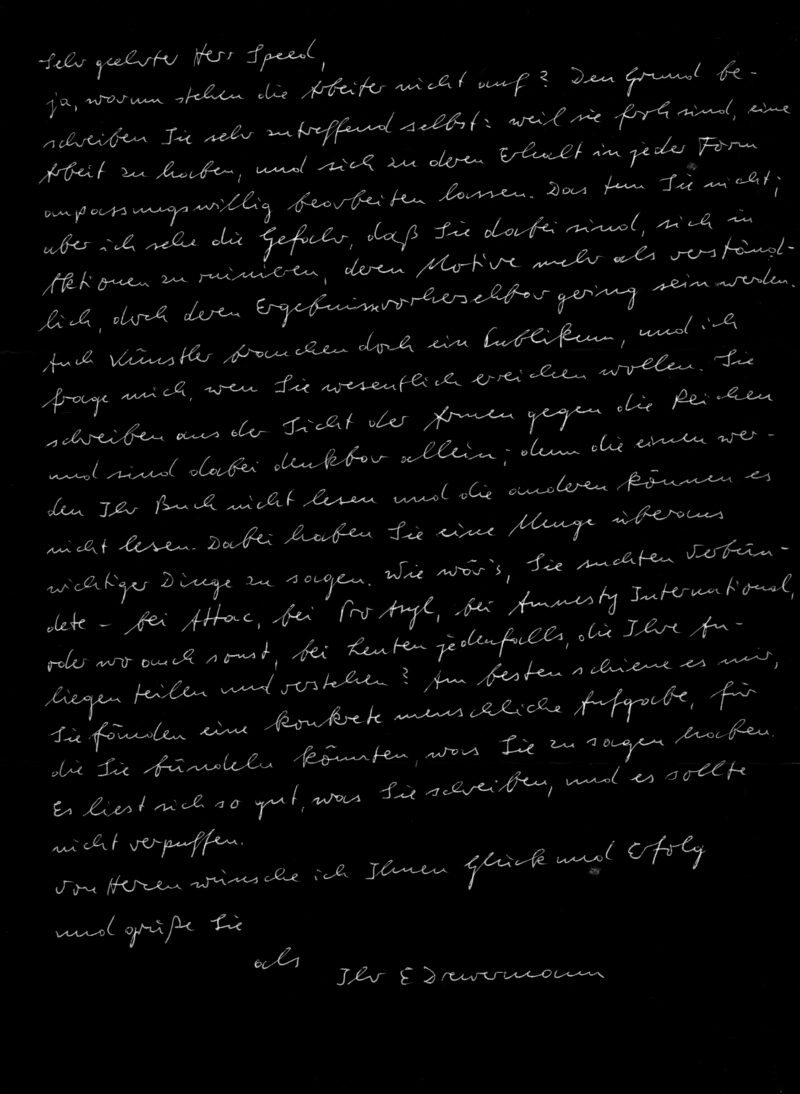 Sehr geehrter Herr Speed,
ja, warum stehen die Arbeiter nicht auf? Den Grund be-
schreiben Sie sehr zutreffend selbst: weil sie froh sind, eine
Arbeit zu haben, und sich zu deren Erhalt in jeder Form
anpassungswillig bearbeiten lassen. Das tun Sie nicht;
aber ich sehe die Gefahr, daß Sie dabei sind, sich in
Aktionen zu ruinieren, deren Motive mehr als verständ-
lich, doch deren Ergebnisse vorhersehbar gering sein werden.
Auch Künstler brauchen doch ein Publikum, und ich
frage mich, wen Sie wesentlich erreichen wollen. Sie
schreiben aus der Sicht der Armen gegen die Reichen
und sind dabei denkbar allein; denn die einen wer-
den Ihr Buch nicht lesen und die anderen können es
nicht lesen. Dabei haben Sie eine Menge überaus
wichtiger Dinge zu sagen. Wie wär's, Sie suchten Verbün-
dete – bei Attac, bei Pro Asyl, bei Amnesty International,
oder wo auch sonst, bei Leuten jedenfalls, die Ihre An-
liegen teilen und verstehen? Am besten schiene es mir,
Sie fänden eine konkrete menschliche Aufgabe, für
die Sie bündeln könnten, was Sie zu sagen haben.
Es liest sich so gut, was Sie schreiben, und es sollte
nicht verpuffen.
Von Herzen wünsche ich Ihnen Glück und Erfolg
und grüße Sie
als
Ihr E Drewermann